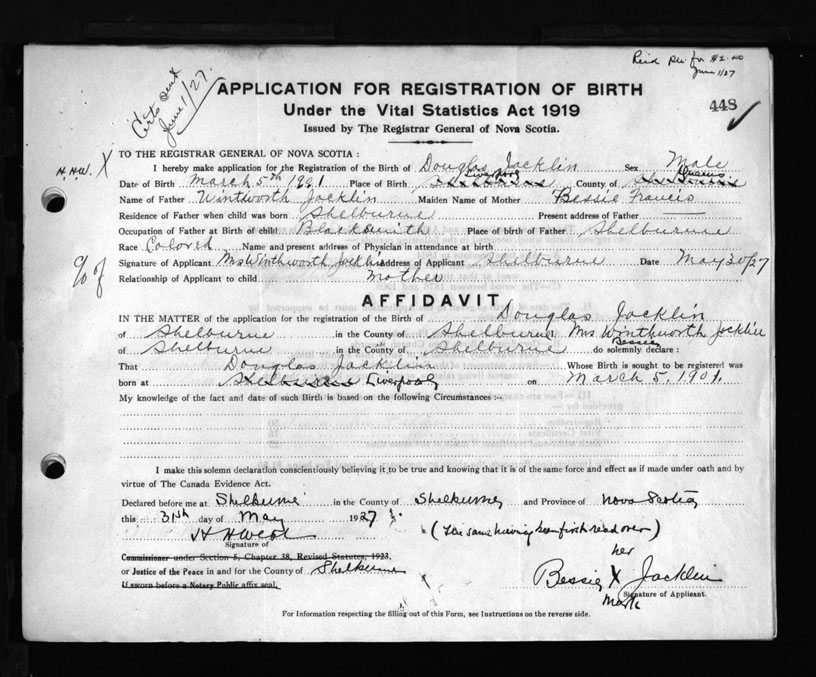 Certs sent
June 1/27.
Paid Dr. for $2.00
June 1/27
APPLICATION FOR REGISTRATION OF BIRTH
Under the Vital Statistics Act 1919
448
Issued by The Registrar General of Nova Scotia.
H.H.W. X
TO THE REGISTRAR GENERAL OF NOVA SCOTIA:
I hereby make application for the Registration of the Birth of Douglas Jacklin Sex Male
Liverpool Queens
Date of Birth March 5th 1901 Place of Birth Shelburne County of Shelburne
Name of Father Wintworth Jacklin Maiden Name of Mother Bessie Francis
Residence of Father when child was born Shelburne Present address of Father
Occupation of Father at Birth of child Blacksmith Place of birth of Father Shelburne
Race Colored Name and present address of Physician in attendance at birth
c/o
Signature of Applicant Mrs Winthworth Jacklin Address of Applicant Shelburne Date May 30/27
Relationship of Applicant to child Mother
AFFIDAVIT
IN THE MATTER of the application for the registration of the Birth of Douglas Jacklin
of Shelburne in the County of Shelburne Mrs Winthworth Jacklin
Bessie
of Shelburne in the County of Shelburne do solemnly declare:
That Douglas Jacklin Whose Birth is sought to be registered was
born at Shelburne Liverpool on March 5. 1901.
My knowledge of the fact and date of such Birth is based on the following Circumstances :-
I make this solemn declaration conscientiously believing it to be true and knowing that it is of the same force and effect as if made under oath and by
virtue of The Canada Evidence Act.
Declared before me at Shelburne in the County of Shelburne and Province of Nova Scotia
this 31th day of May 1927
(The same having been first read over)
H H West
Signature of
Commissioner under Section 5, Chapter 38, Revised Statutes, 1923,
or Justice of the Peace in and for the County of Shelburne
If sworn before a Notary Public affix seal.
her
Bessie X Jacklin
mark
Signature of Applicant.
For Information respecting the filling out of this Form, see Instructions on the reverse side.